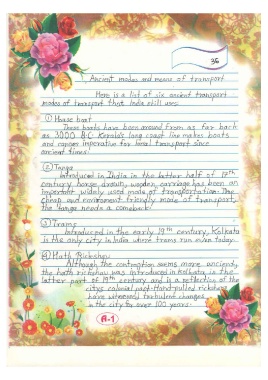 36
Ancient modes and means of transport
Here is a list of six ancient transport
modes of transport that India still uses
① House boat
These boats have been around from as far back
as 3000 B.C Kerala's long coast line makes boats
and canoes imperative for local transport since
ancient times!
② Tanga
Introduced in India in the latter half of 17th
century horse drawn, wooden carriage has been an
important widely used mode of transportation. The
cheap and environment friendly mode of transport,
the tanga needs a comeback!
③ Trams
Introduced in the early 19th century, Kolkata
is the only city in India where trams run even today
④ Hath Rickshaw
Although the contraption seems more ancient,
the hath rickshaw was introduced in Kolkata in the
latter part of 19th century and is a reflection of the
citys colonial past. Hand-pulled rickshaws
have witnessed turbulent changes
in the city for over 100 years.
A-1